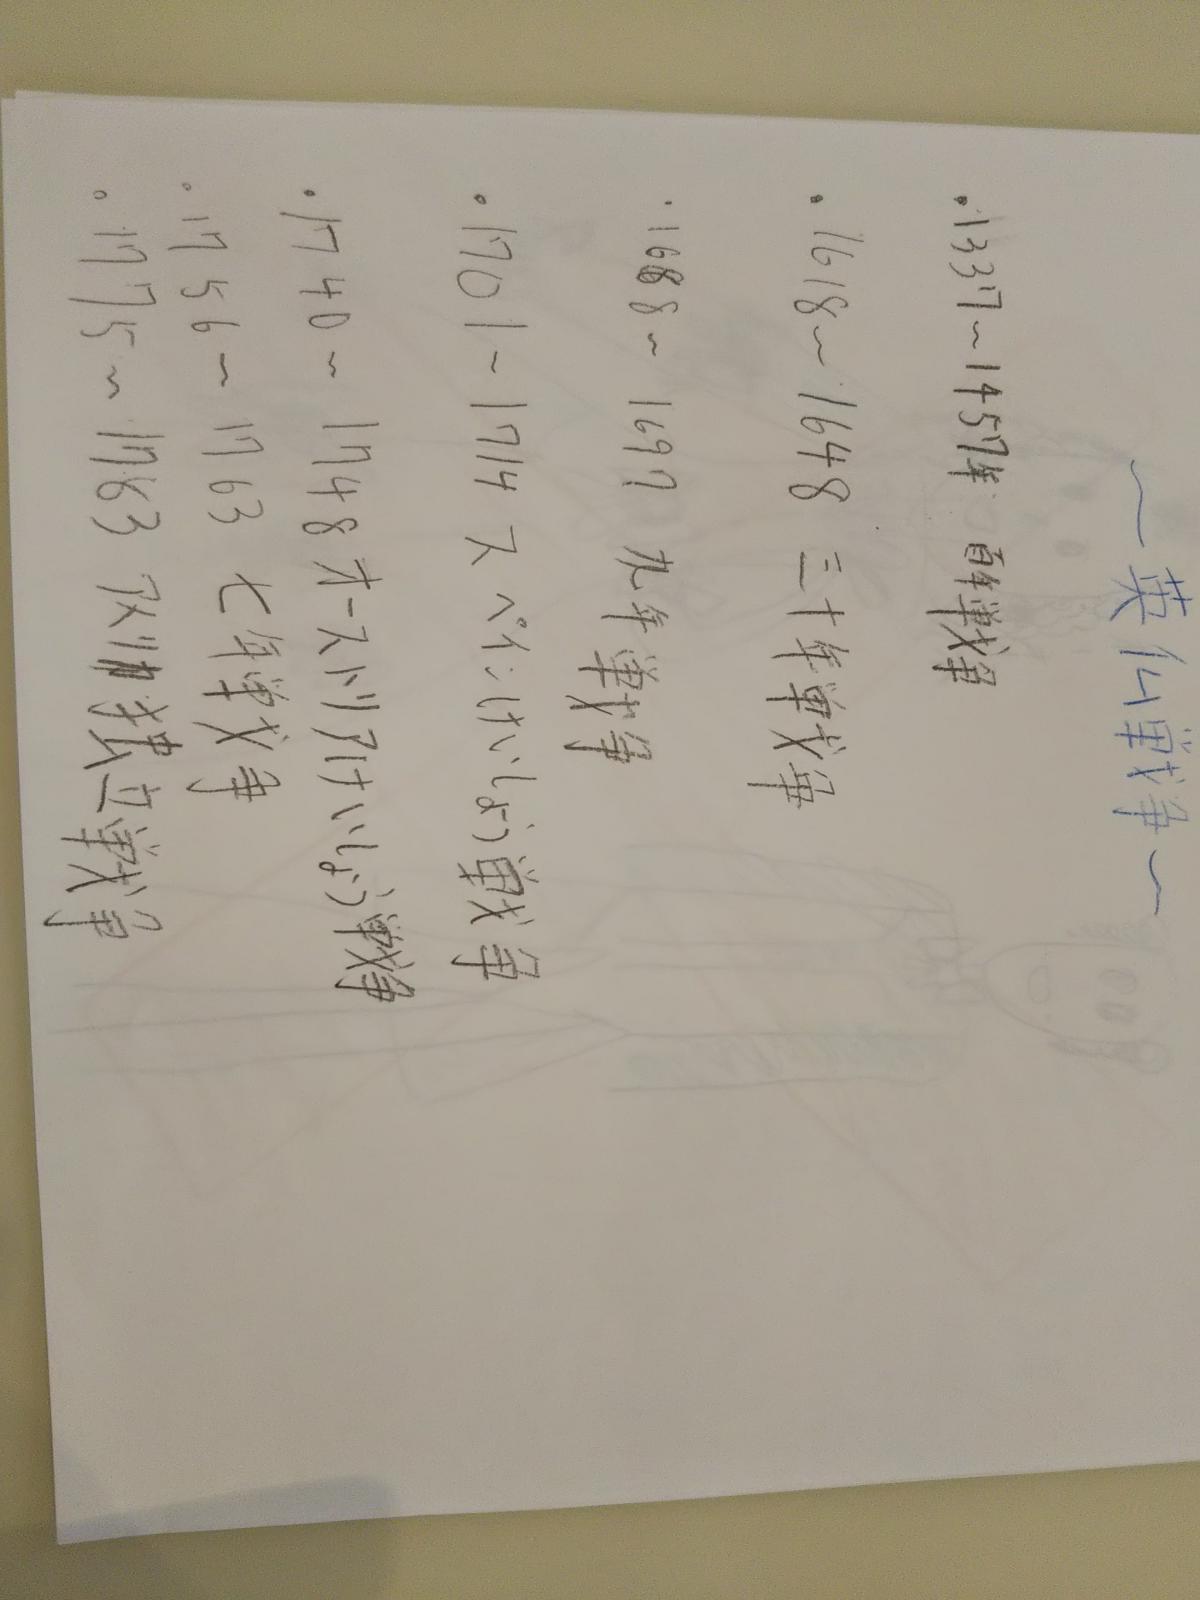 〜英仏戦争〜
・1337〜1457年 百年戦争
・1618〜1648 三十年戦争
・1688〜1697 九年戦争
・1701〜1714 スペインけいしょう戦争
・1740〜1748オーストリアけいしょう戦争
・1756〜1763 七年戦争
・1775〜1783 アメリカ独立戦争